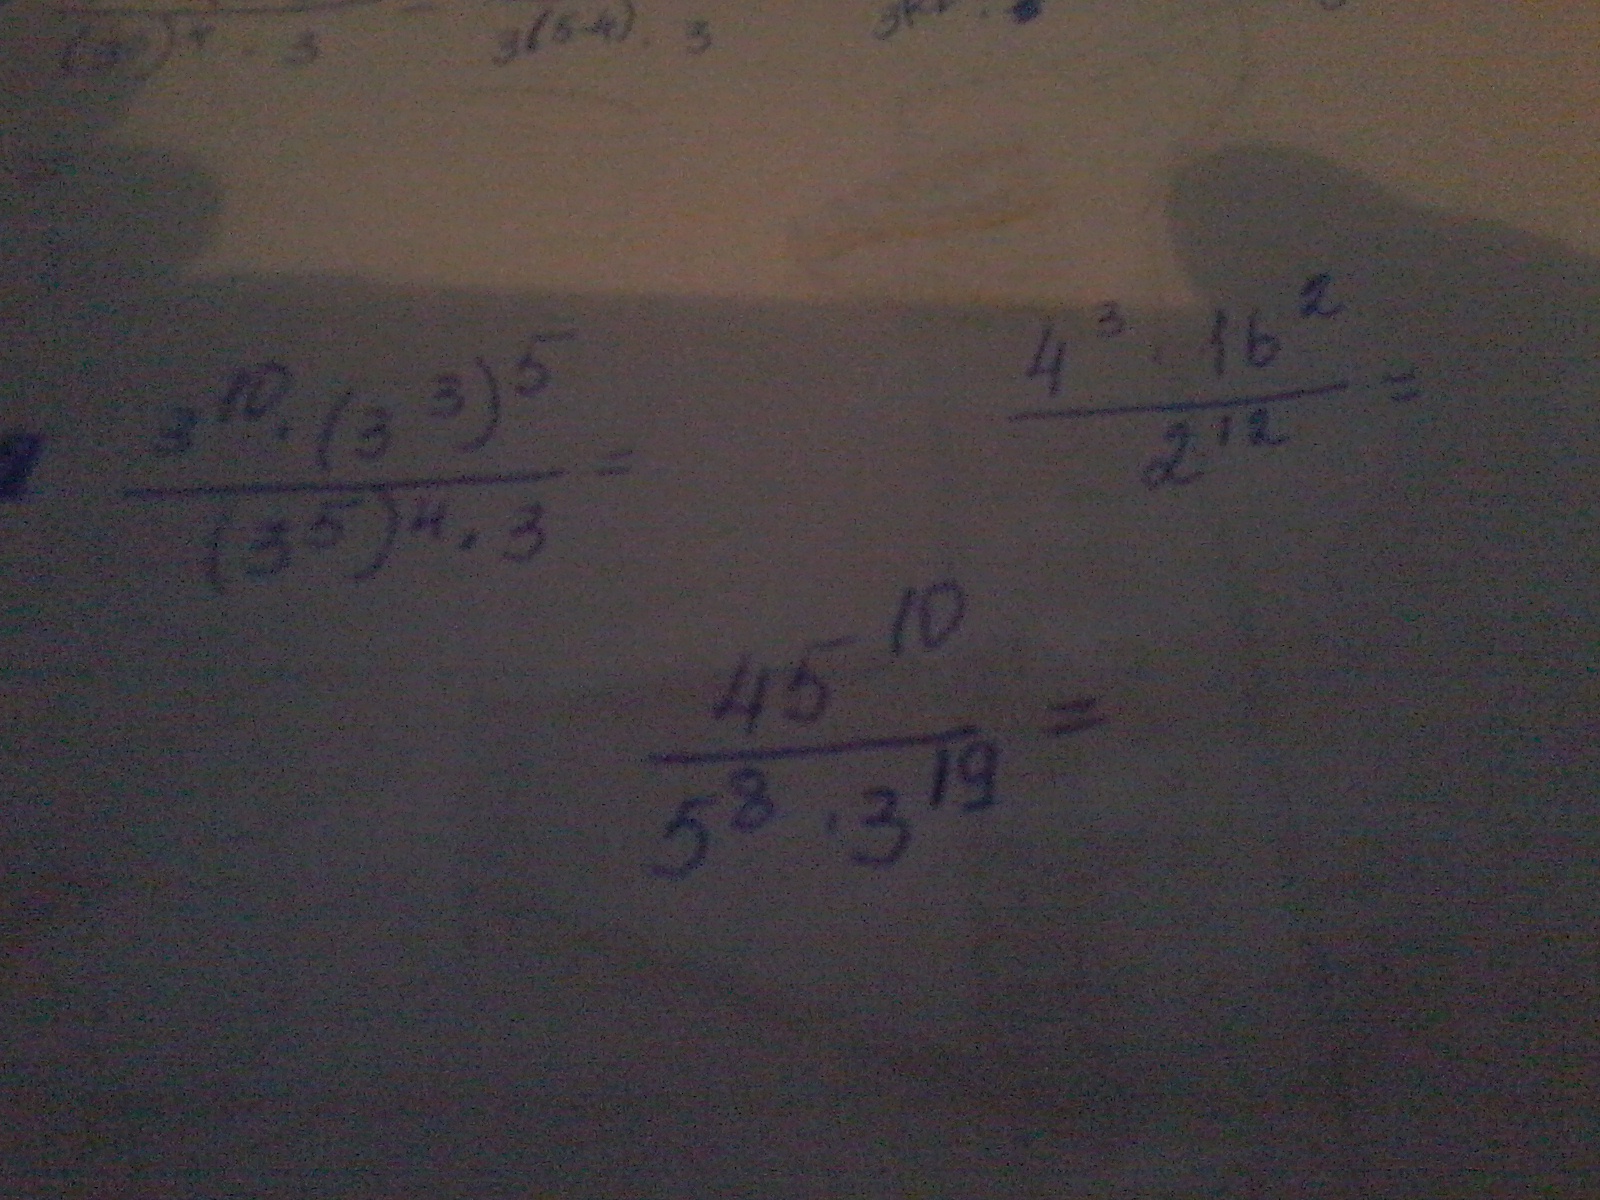 3^(5·4) · 3
3^10 · (3^3)^5 / (3^5)^4 · 3 =
4^3 · 16^2 / 2^12 =
45^10 / 5^8 · 3^19 =